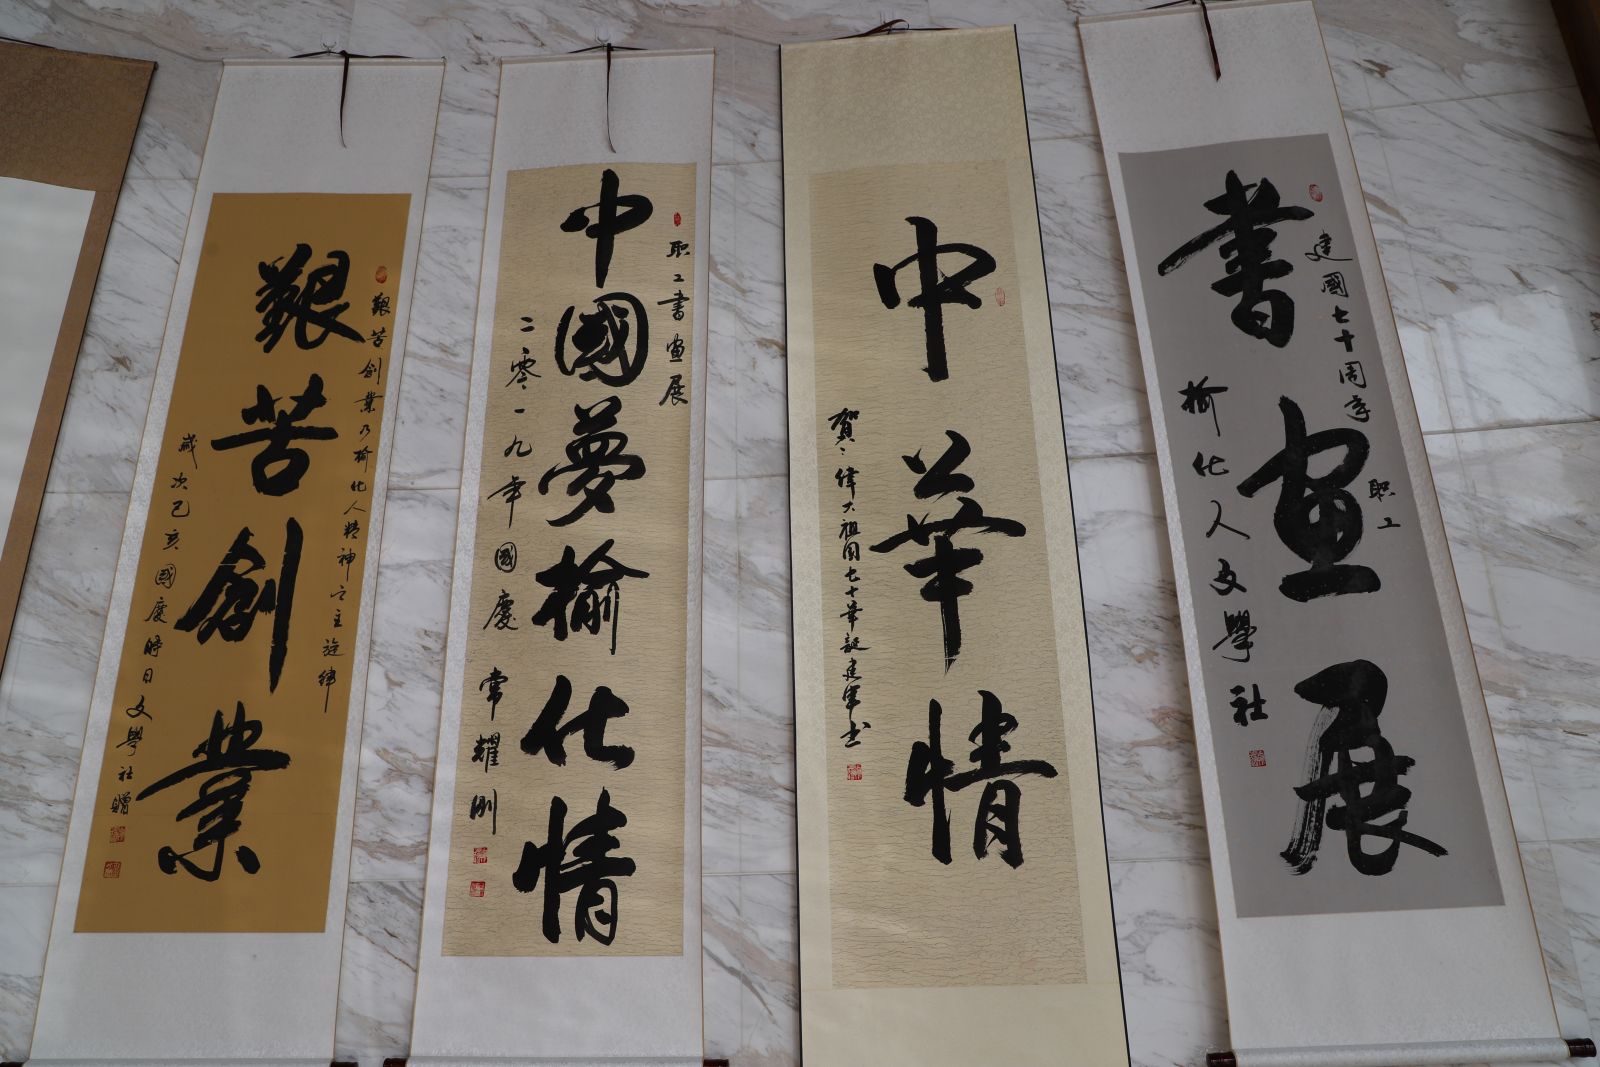 書畫展
建國七十周年
职工
榆化人文學社
中華情
賀偉大祖国七十華誕
中國夢榆化情
职工書畫展
二零一九年國慶
常耀刚
艱苦創業
艱苦創業乃榆化人精神之主旋律
歲次己亥國慶時日文學社贈